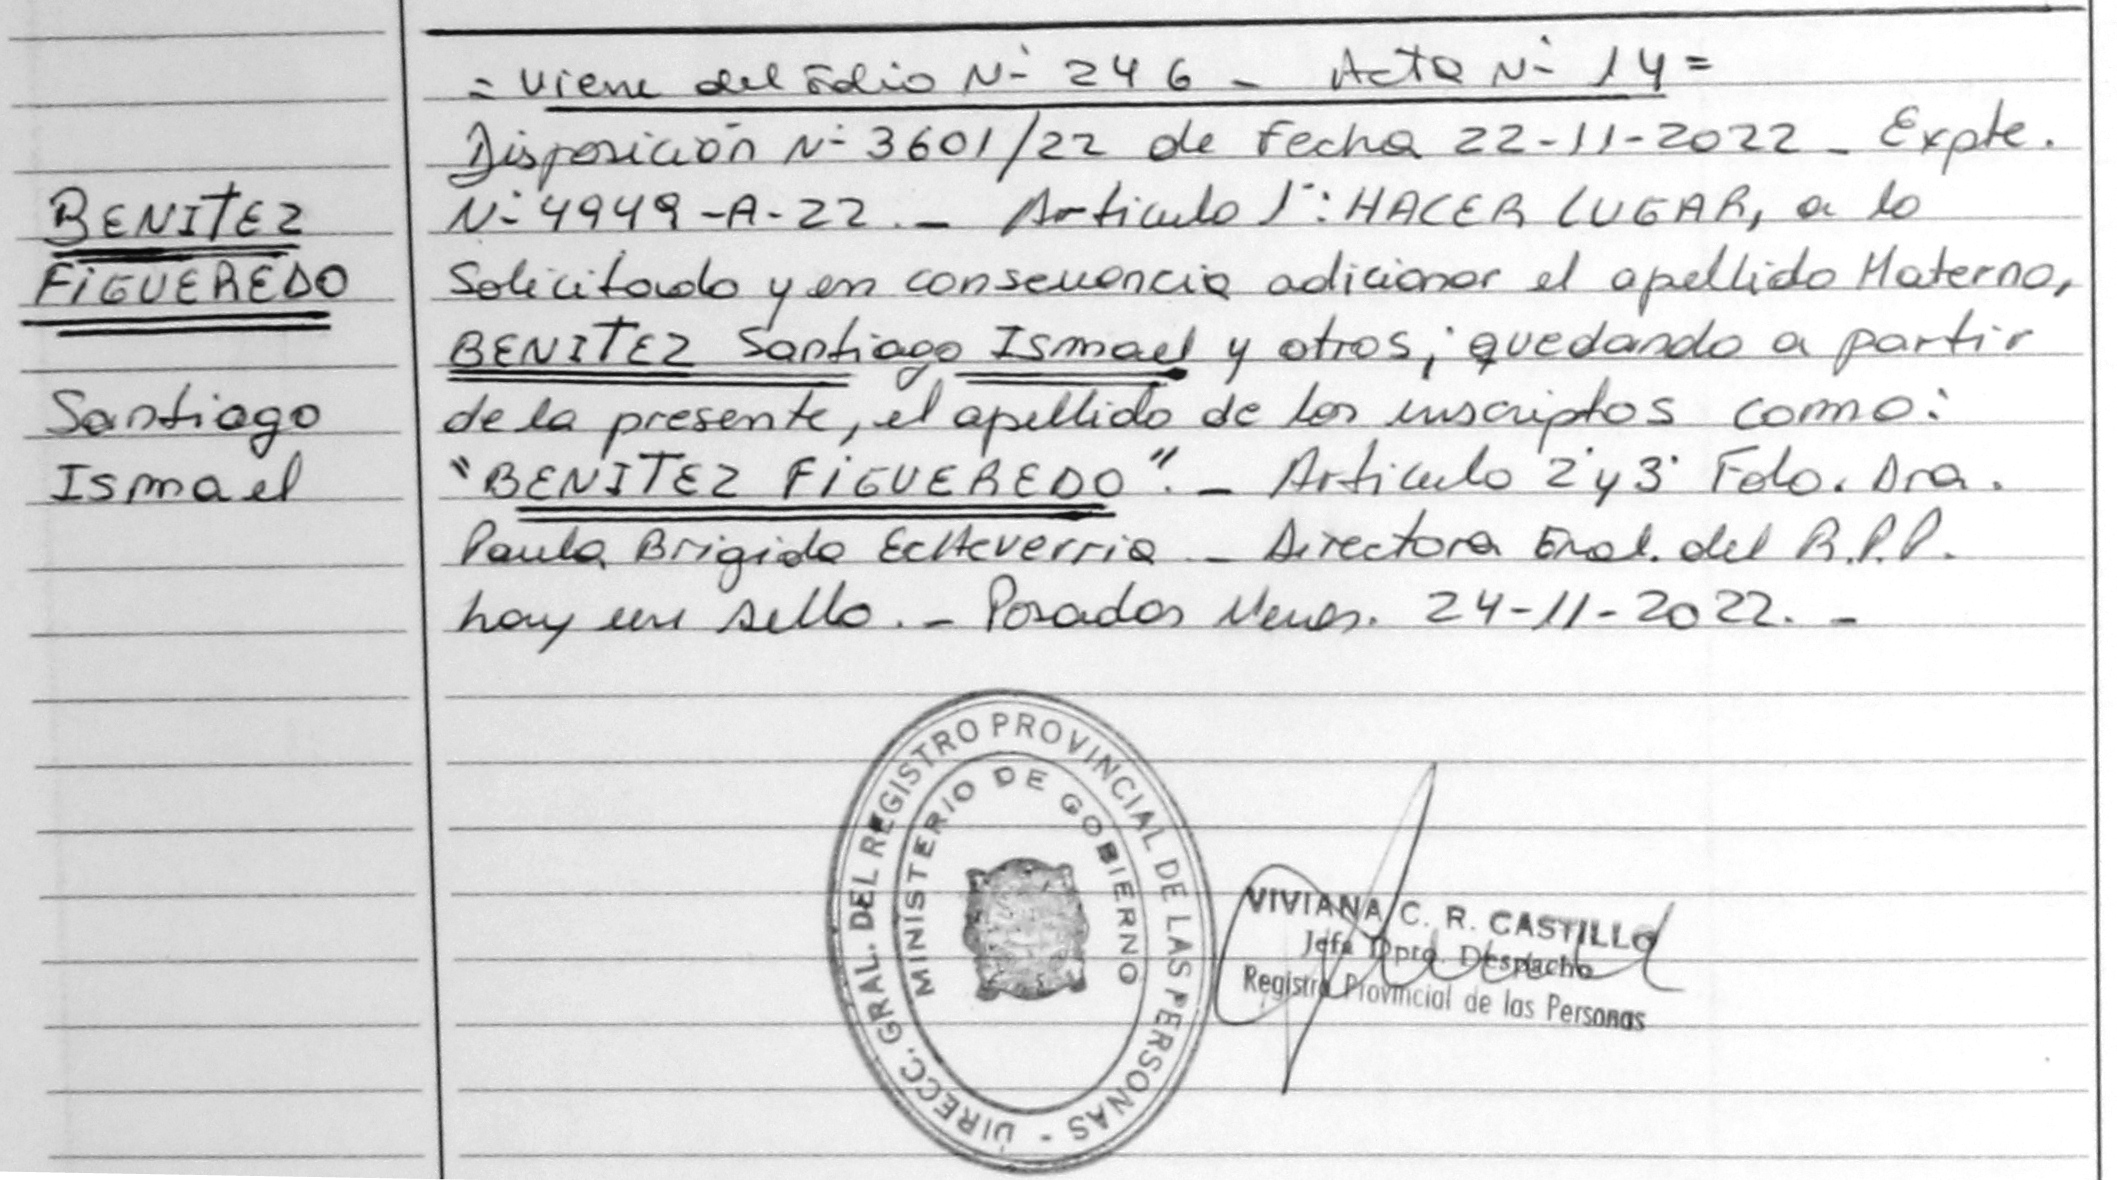 = Viene del Folio N° 246 - Acta N° 14 =
Disposición N° 3601/22 de Fecha 22-11-2022 - Expte.
N° 4949-A-22. - Articulo 1°: HACER LUGAR, a lo
Solicitado y en consecuencia adicionar el apellido Materno,
BENITEZ Santiago Ismael y otros; quedando a partir
de la presente, el apellido de los inscriptos como:
"BENITEZ FIGUEREDO". - Articulo 2° y 3° Fdo. Dra.
Paula Brigida Echeverria - Directora Gral. del R.P.P.
hay un sello. - Posadas Mnes. 24-11-2022. -
BENITEZ
FIGUEREDO
Santiago
Ismael
DIRECC. GRAL. DEL REGISTRO PROVINCIAL DE LAS PERSONAS -
MINISTERIO DE GOBIERNO
VIVIANA C. R. CASTILLO
Jefa Dpto. Despacho
Registro Provincial de las Personas